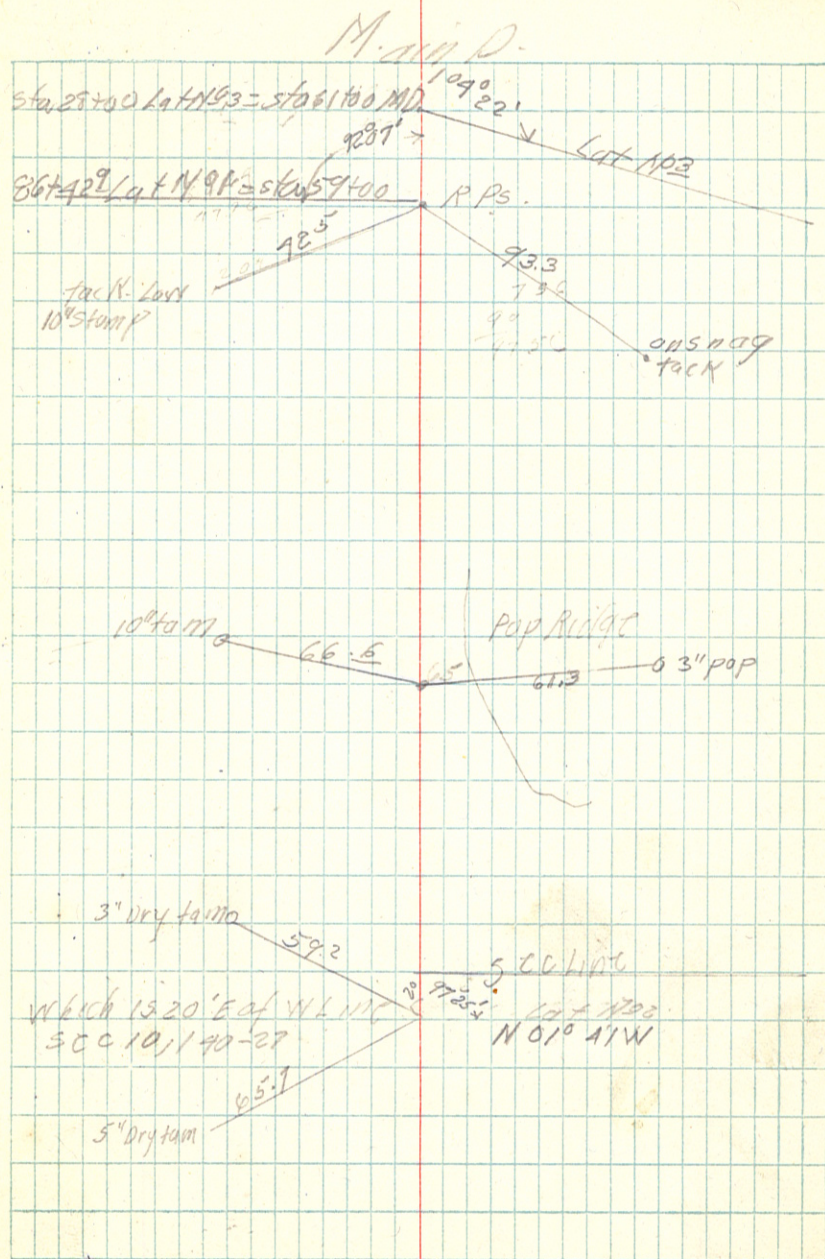 Main D.
104° 22'
Sta. 28+00 Lat N93 = sta 61+00 MD.
92°07'
Lat N93
86+42⁹ Lat N9A = sta 59+00
R Ps.
42⁵
93.3
tack Low
10" Stamp
on snag
tack
10" tam
66.6
Pop Ridge
65
61.3
3" pop
3" Dry tam
59.2
Sec Line
20
97°25'
Which is 20' E of W Line
Sec 10, 140-27
N 01° 41 W
65.1
5" Dry tam